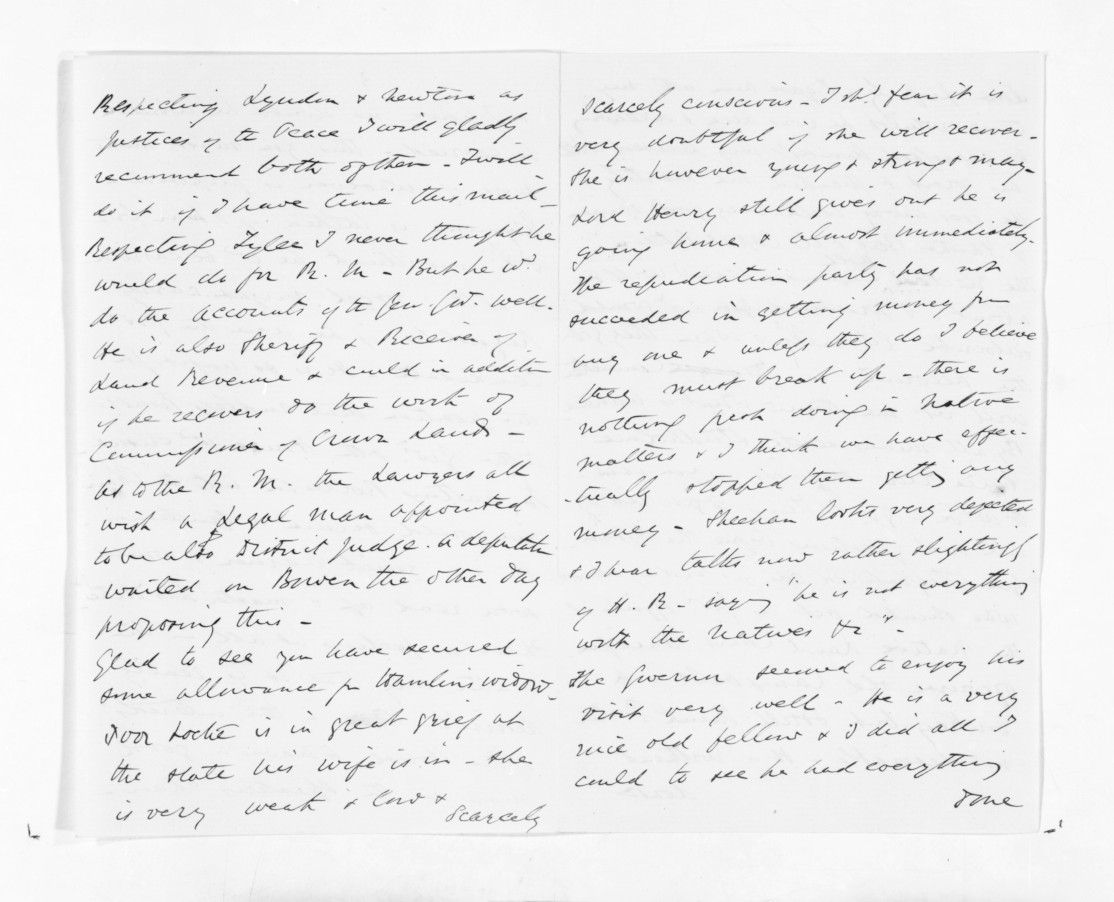 Respecting Lyndon & Newton as
Justices of the Peace I will gladly
recommend both of them - I will
do it if I have time this mail -
Respecting Tylee I never thought he
would do for R. M - But he wd.
do the accounts of the Gen. Govt. well.
He is also Sheriff & Receiver of
Land Revenue & could in addition
if he recovers do the work of
Commissioner of Crown Lands -
As to the R. M. the Lawyers all
wish a Legal man appointed
to be also District Judge. a deputation
waited on Bowen the other day
proposing this -
Glad to see you have secured
some allowance for Hamlins widow -
Poor Locke is in great grief at
the state his wife is in - she
is very weak & low &
scarcely
scarcely conscious - I shd. fear it is
very doubtful if she will recover -
She is however young & strong & may -
Lord Henry still gives out he is
going home & almost immediately.
The repudiation party has not
succeeded in getting money from
any one & unless they do I believe
they must break up - there is
nothing fresh doing in Native
matters & I think we have effec-
-tually stopped them getting any
money - Sheehan looks very dejected
& I hear talks now rather slightingly
of H. R - saying "he is not everything
with the Natives &c" -
The Governor seemed to enjoy his
visit very well - He is a very
nice old fellow & I did all I
could to see he had everything
done